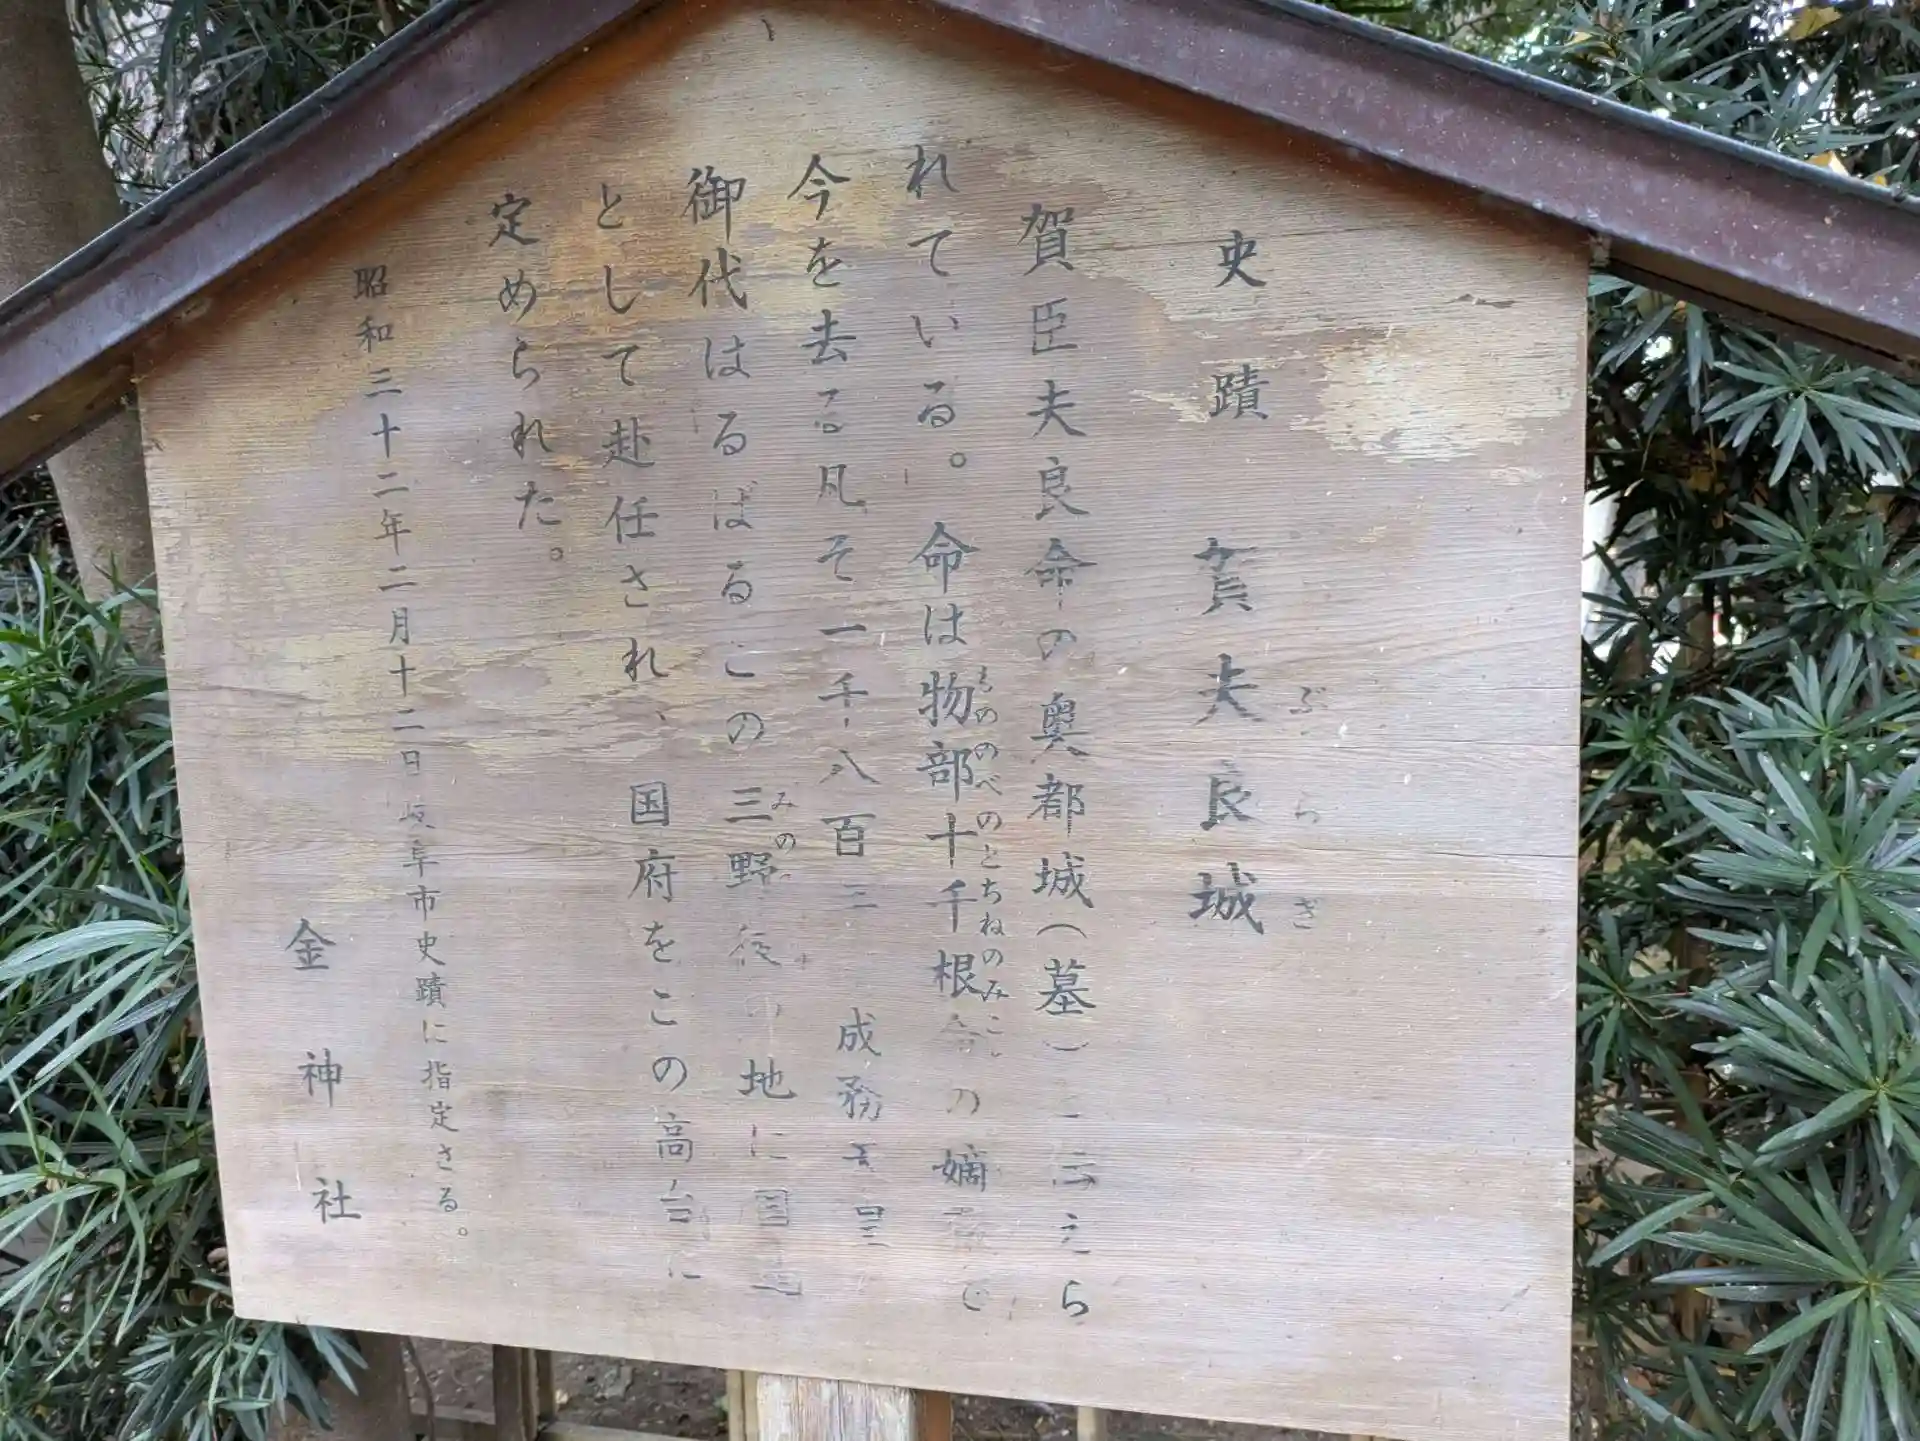 史蹟 賀夫良城
ぶらぎ
賀臣夫良命の奥都城(墓)と伝えら
れている。命は物部十千根命の嫡孫で
もののべのとちねのみこ
今を去る凡そ一千八百三 成務天皇
御代はるばるこの三野後の地に国造
みの
として赴任され、国府をこの高台に
定められた。
昭和三十二年二月十二日岐阜市史蹟に指定さる。
金神社